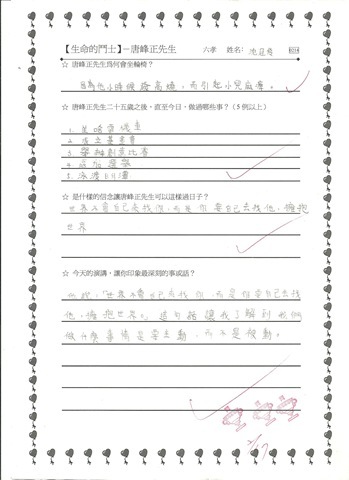 【生命的鬥士】—唐峰正先生 六孝 姓名:
☆ 唐峰正先生為何會坐輪椅?
因為他小時候發高燒,而引起小兒麻痺。
☆ 唐峰正先生二十五歲之後,直至今日,做過哪些事?(5例以上)
1.
2. 成立基金會
3. 舉辦創意比賽
4.
5. 泳渡日月潭
☆ 是什樣的信念讓唐峰正先生可以這樣過日子?
世界不會自己去找你,而是你要自己去找他、擁抱
世界
☆ 今天的演講,讓你印象最深刻的事或話?
「世界不會自己去找你,而是你要自己去找
他、擁抱世界。」這句話讓我了解到我們
做什麼事情是要主動,而不是被動。